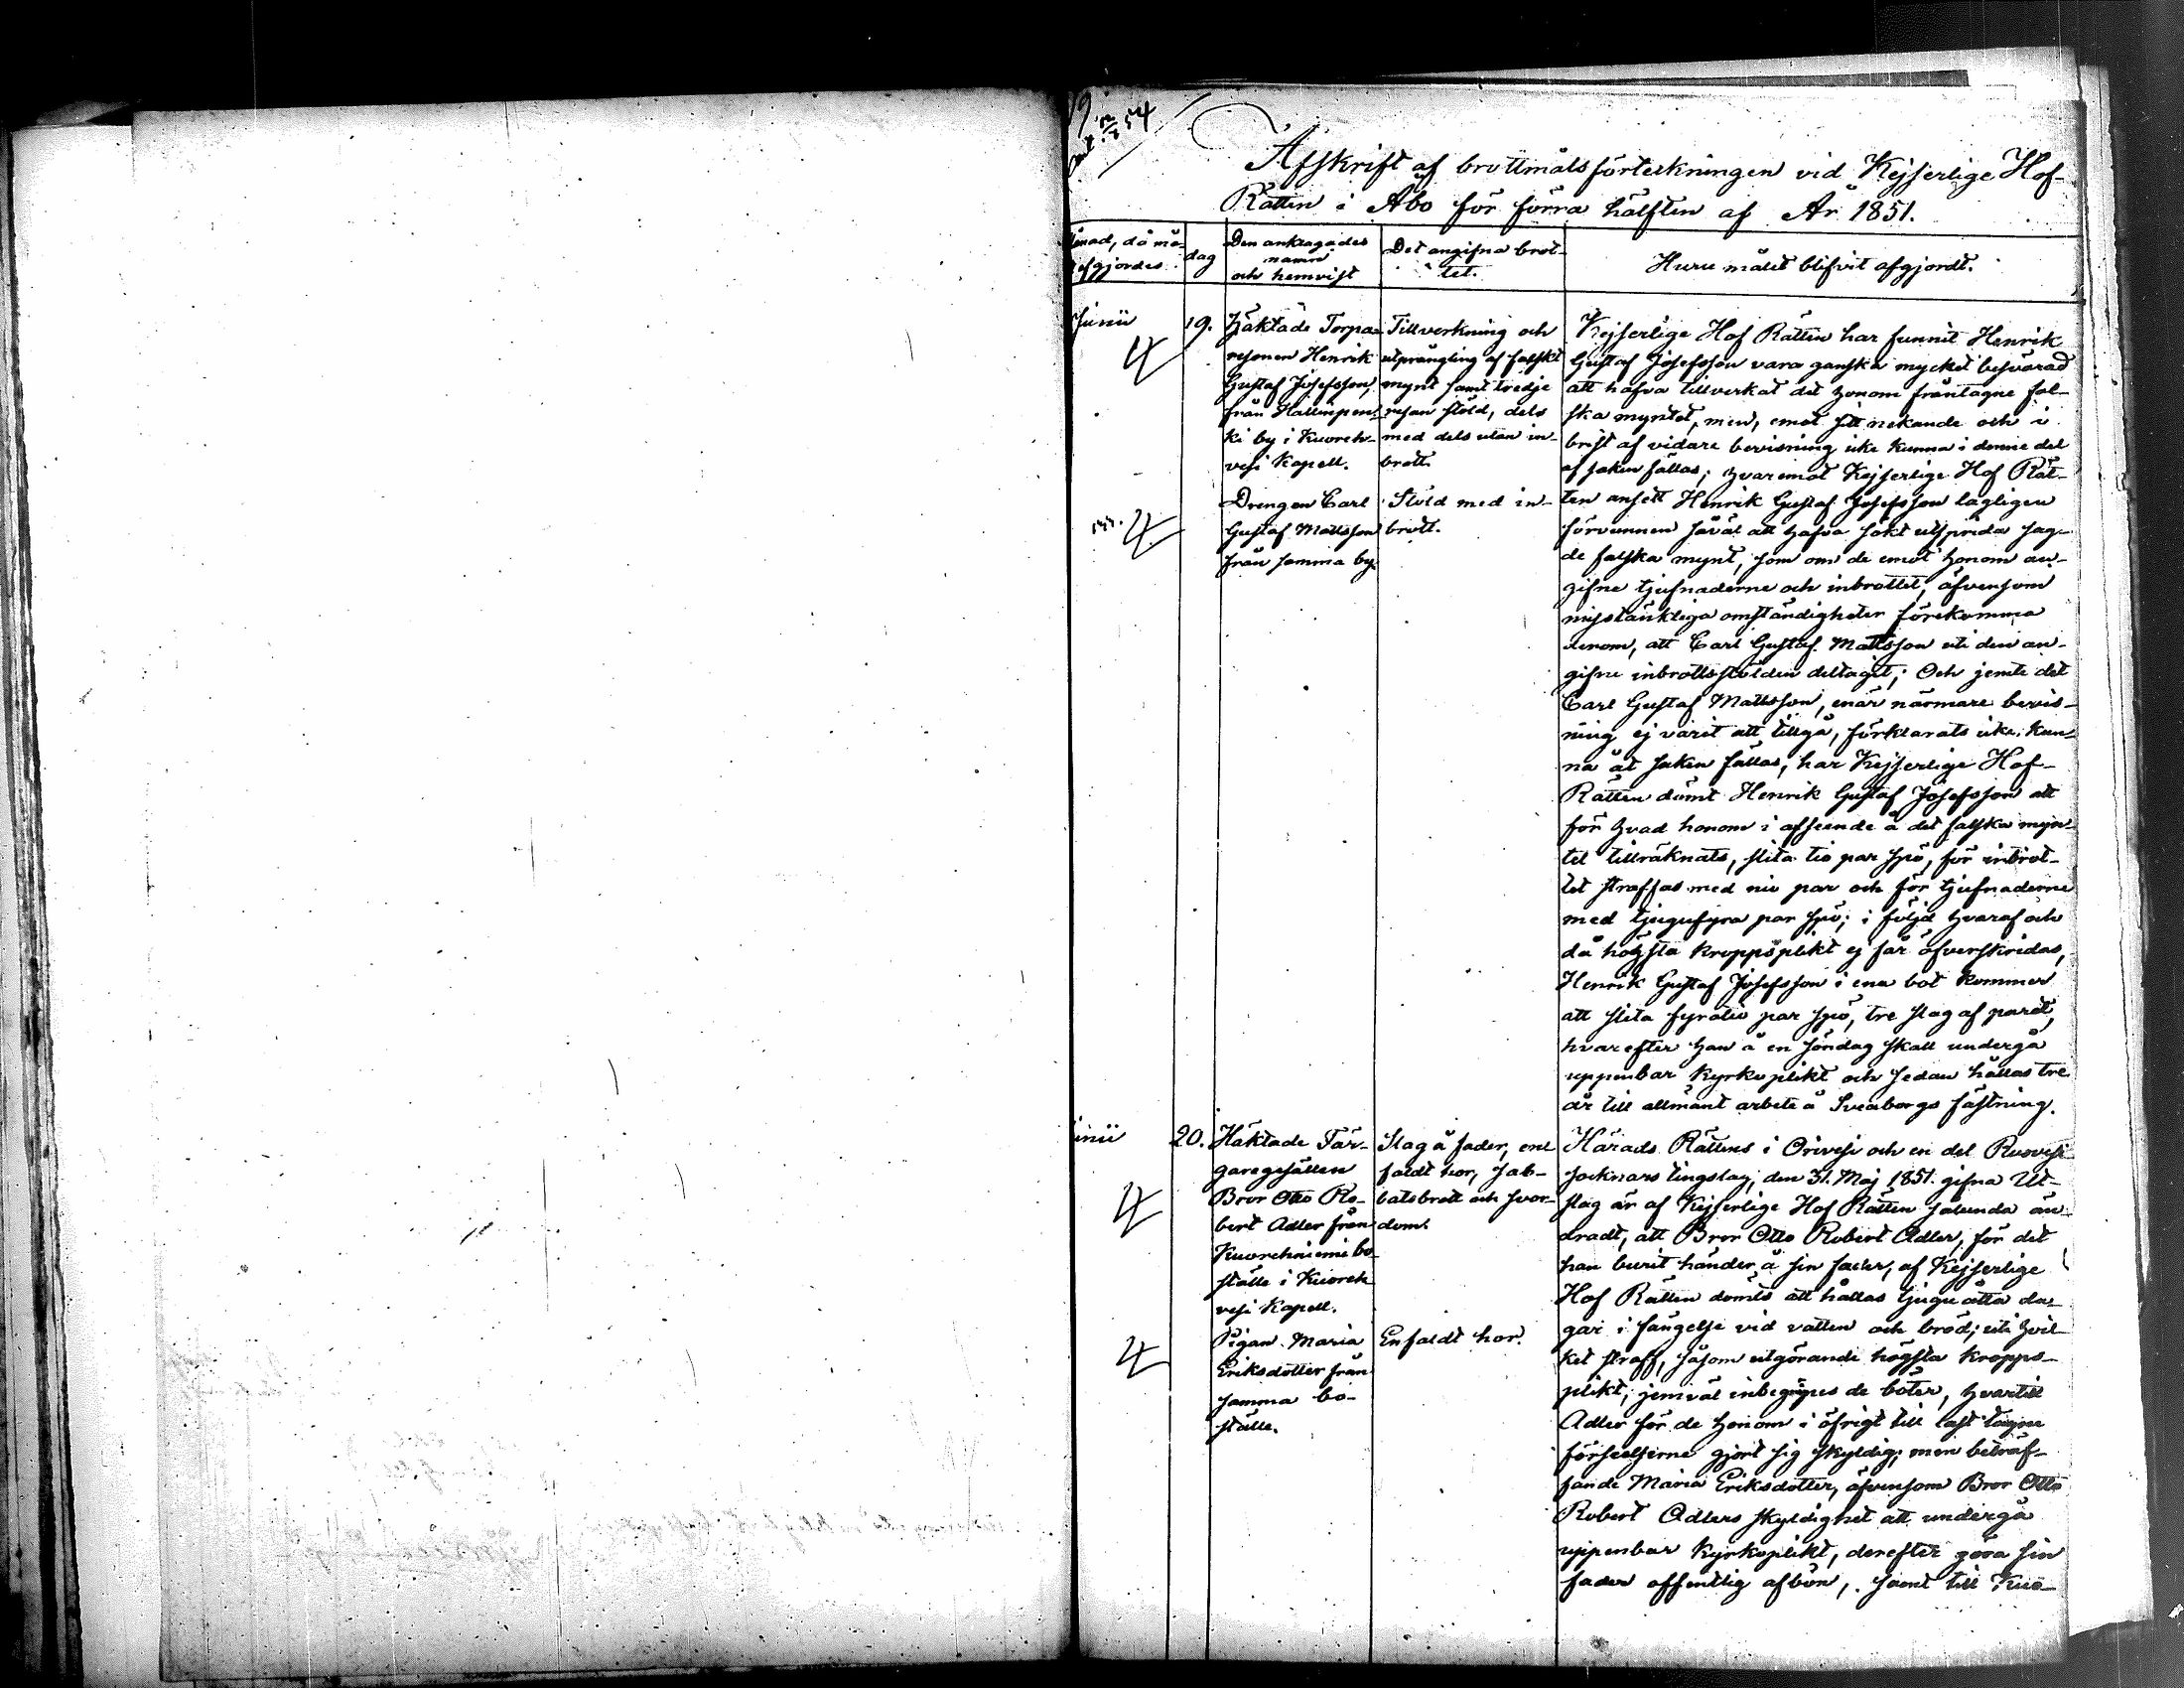 Afskrift af brottmålsförteckningen vid Kejserlige Hof-
Rätten i Åbo för förra hälften af År 1851.
månad, då må-
afgjordes
dag
Den anklagades
namn
och hemvist
Det angifna brot-
tet.
Huru målet blifvit afgjordt.
Junii
19.
Häktade Torpa-
resonen Henrik
Gustaf Josefsson,
från Hallinpen-
ki by i Kuoreh-
vesi Kapell.
Tillverkning och
utprångling af falskt
mynt samt tredje
resan stöld, dels
med dels utan in-
brott.
Drengen Carl
Gustaf Mattsson
från samma by.
Stöld med in-
brott.
Kejserlige Hof Rätten har funnit Henrik
Gustaf Josefsson vara ganska mycket besvärad
att hafva tillverkat det honom fråntagne fal-
ska myntet, men, emot sitt nekande och i
brist af vidare bevisning icke kunna i denne del
af saken fällas; hvaremot Kejserlige Hof Rät-
ten ansett Henrik Gustaf Josefsson lagligen
förvunnen såväl att hafva sökt utsprida sag-
de falska mynt, som om de emot honom an-
gifne tjufnaderne och inbrottet, äfvensom
misstänkliga omständigheter förekomma
derom, att Carl Gustaf Mattsson uti den an-
gifne inbrottsstölden deltagit; Och jemte det
Carl Gustaf Mattsson, enär närmare bevis-
ning ej varit att tillgå, förklarats icke kun-
na åt saken fällas, har Kejserlige Hof-
Rätten dömt Henrik Gustaf Josefsson att
för hvad honom i afseende å det falska myn-
tet tillräknats, slita tio par spö, för inbrot-
tet straffas med nio par och för tjufnaderne
med tjugufyra par spö; i följd hvaraf och
då högsta kroppsplikt ej får öfverskridas,
Henrik Gustaf Josefsson i ena bot kommer
att slita fyratio par spö, tre slag af paret,
hvarefter han å en söndag skall undergå
uppenbar kyrkoplikt och sedan hållas tre
år till allmänt arbete å Sveaborgs fästning.
Junii
20.
Häktade Fär-
garegesällen
Bror Otto Ro-
bert Adler från
Kuorehniemi bo-
ställe i Kuoreh-
vesi Kapell.
Slag å fader, en-
faldt hor, sab-
batsbrott och svor-
dom.
Pigan Maria
Eriksdotter från
samma bo-
ställe.
Enfaldt hor.
Härads Rättens i Orivesi och en del Ruovesi
socknars tingslag, den 31. Maj 1851. gifna Ut-
slag är af Kejserlige Hof Rätten sålunda än-
dradt, att Bror Otto Robert Adler, för det
han burit händer å sin fader, af Kejserlige
Hof Rätten dömts att hållas tjugu åtta da-
gar i fängelse vid vatten och bröd; uti hvil-
ket straff, såsom utgörande högsta kropps-
plikt, jemväl inbegripes de böter, hvartill
Adler för de honom i öfrigt till last tagne
förseelserne gjort sig skyldig; men beträf-
fande Maria Eriksdotter, äfvensom Bror Otto
Robert Adlers skyldighet att undergå
uppenbar kyrkoplikt, derefter göra sin
fader offentlig afbön, samt till Kuo-